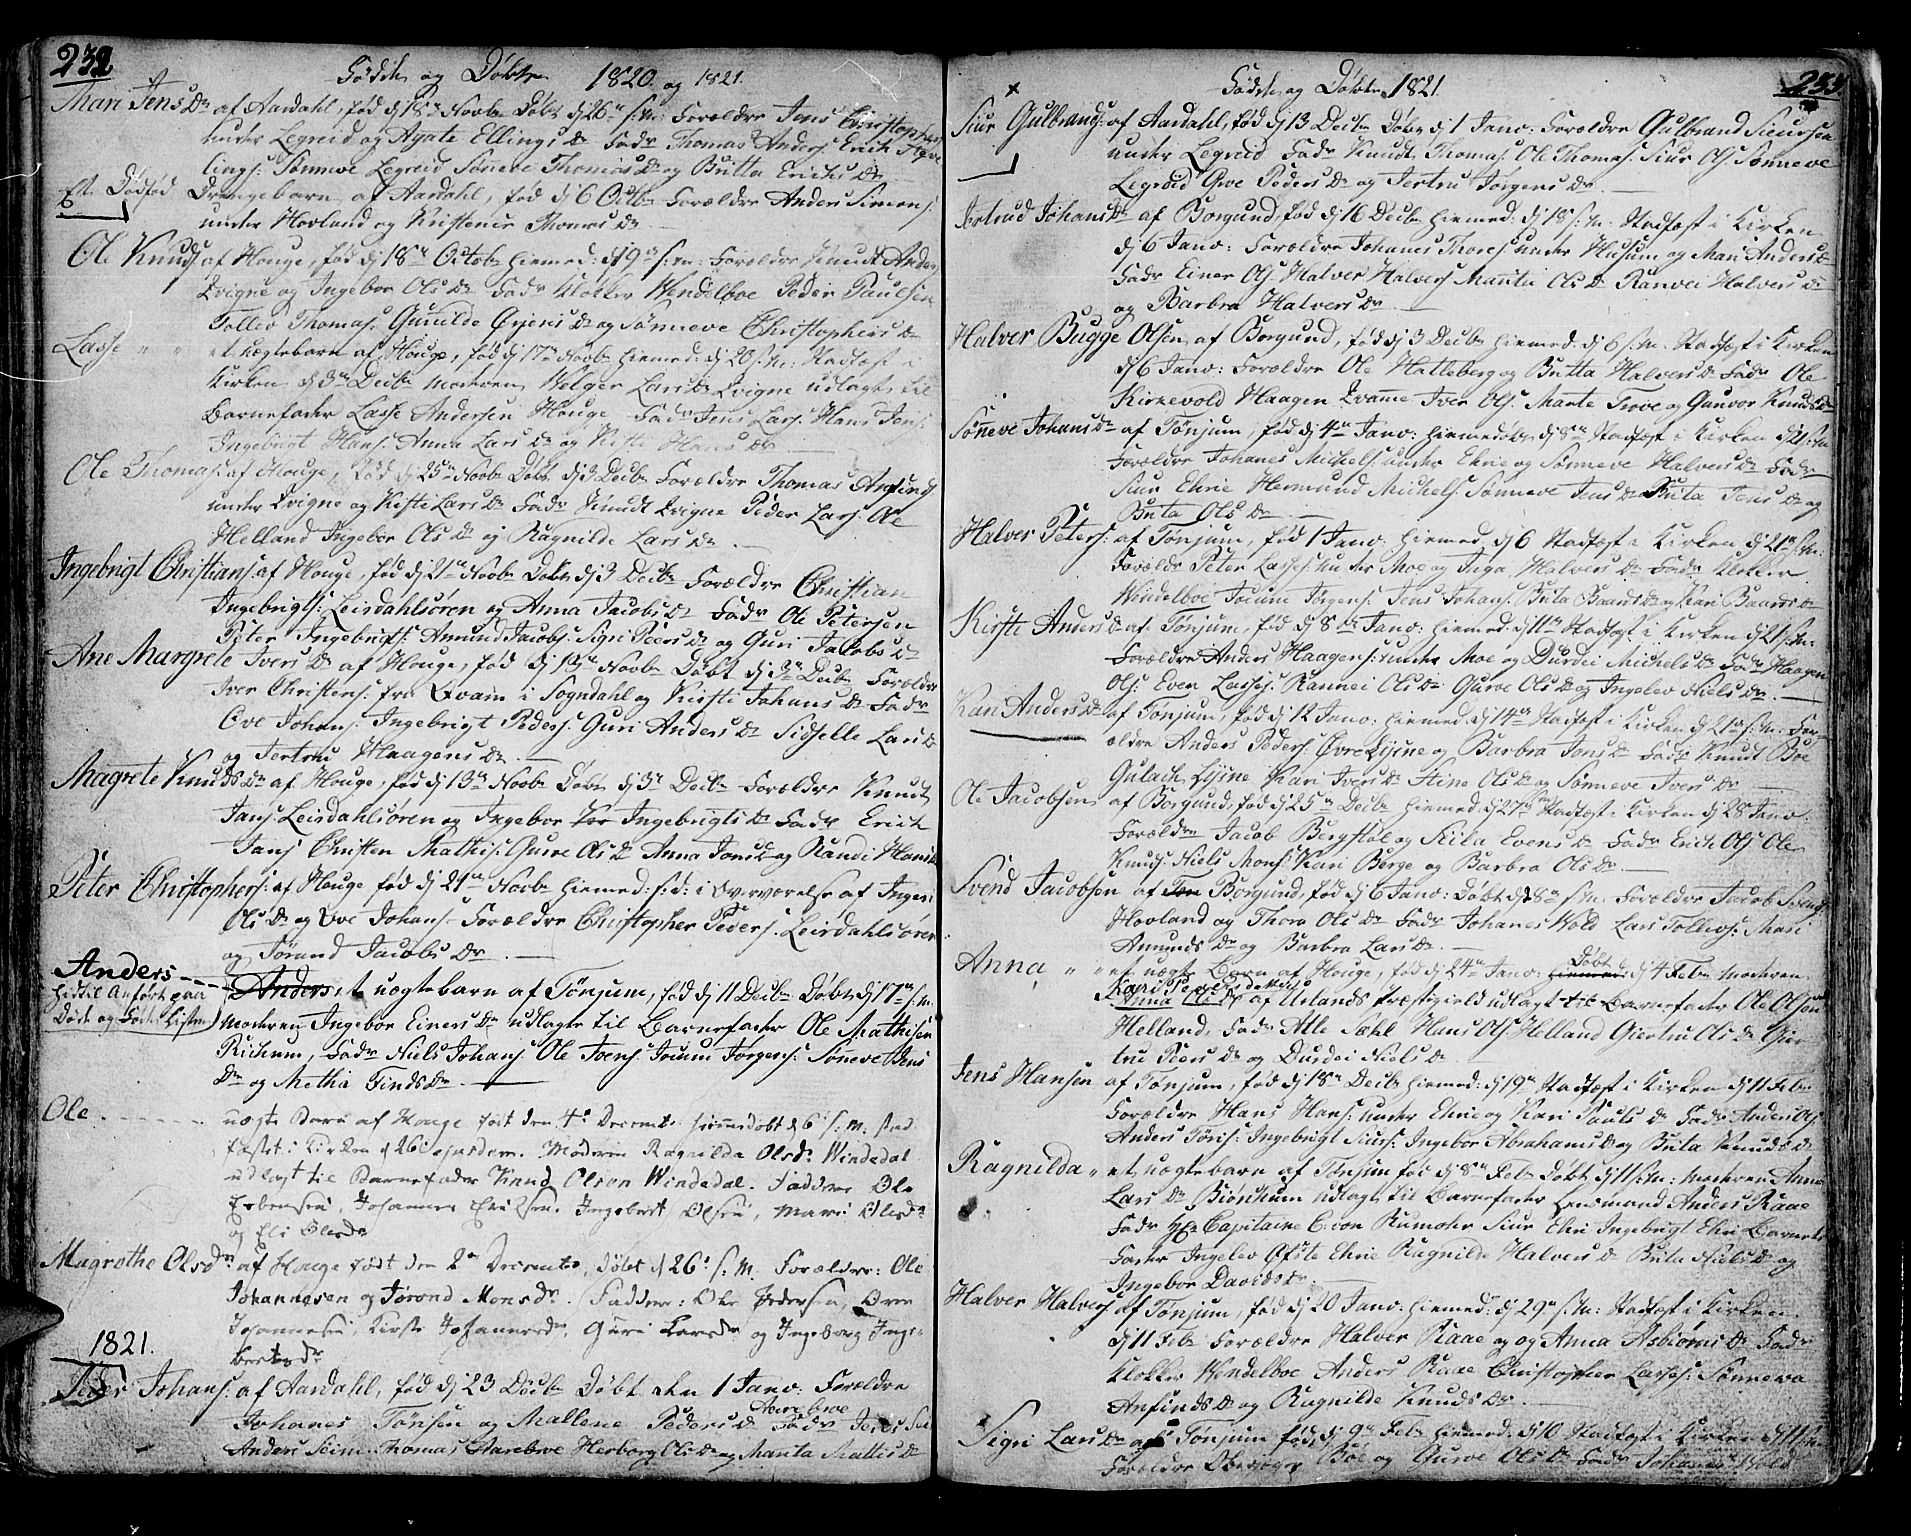 232
Födde og Döbte 1820 og 1821.
Mari Jens Dr af Aardahl, fød d 18n Novbr Døbt d 26n s: m: Forældre Jens Christophers:
under Legreid og Agate Ellings Dr Fadr Thomas Anders: Erich
lings: Sønneve Legreid Sønneve Thomas Dr og Butta Erichs Dr
Et Dødfød Drengebarn af Aardahl, fød d 6 Octbr Forældre Anders Simens:
under Hovland og Kristence Thomas Dr
Ole Knuds: af Houge, fød d 18n Octobr hiemed: d 19n s: m: Forældre Knudt Anders:
Qvigne og Ingebor Ols Dr Fadr Klokker Wendelboe Peder Paulsen
Tollev Thomas: Gunilde Ørjens Dr og Sønneve Christophers Dr
Lasse " " et uægtebarn af Houge, fød d 17n Novbr hiemed: d 20 s: m: Stadfæst i
Kirken d 3n Decbr moderen Helger Lars Dr Qvigne udlagt til
Barnefader Lasse Andersen Houge Fadr Jens Lars: Hans Jens:
Ingebrigt Hans: Anna Lars Dr og Kirsti Hans Dr
Ole Thomas: af Houge, fød d 25n Novbr Døbt d 3 Decbr Forældre Thomas Anfind:
under Qvigne og Kirsti Lars Dr Fadr Knudt Qvigne Peder Lars: Ole
Helland Ingebor Ols Dr og Ragnilde Lars Dr
Ingebrigt Christians: af Houge, fød d 21n Novbr Døbt d 3 Decbr Forældre Christian
Ingebrigts: Leirdahlsören og Anna Jacobs Dr Fadr Ole Petersen
Peter Ingebrigts: Amund Jacobs: Sigri Peers Dr og Guri Jacobs Dr
Ane Margrete Ivers Dr af Houge, fød d 19n Novbr Døbt d 3n Decbr Forældre
Iver Christens: fra Qvam i Sogndahl og Kirsti Johans Dr Fadr
Ove Johans: Ingebrigt Peders: Guri Anders Dr Sidselle Lars Dr
og Jertru Haagens Dr
Magrete Knuds Dr af Houge, fød d 13n Novbr Døbt d 3n Decbr Forældre Knudt
Jans: Leirdahlsören og Ingebor Ingebrigts Dr Fadr Erich
Jans: Christen Mathis: Gurve Ols Dr Anna Jons Dr og Randi Hans Dr
Peter Christophers: af Houge fød d 21n Novbr hiemed: s: d: i Overværelse af Inger
Ols Dr og Ove Johans: Forældre Christopher Peders: Leirdahlsören
og Tørand Jacobs Dr
Anders Anders, et uægtebarn af Tönjum, fød d 11 Decbr Døbt d 17n s: m:
hidtil Anført paa moderen Ingebor Einers Dr udlagte til Barnefader Ole Mathisen
Døde og Fødte Listen Richum, Fadr Niels Johans: Ole Ivers: Jocum Jörgens: Sönneve Jens
Dr og Metha Finds Dr
Ole uægte Barn af Houge født den 4de December hiemmedøbt d 6 s. m. stad
fæstet i Kirken d 26 ejusdem. Moderen Ragnilda Olsdr Windedal
udlagt til Barnefader Knud Olson Windedal. Faddere Ole
Erbensen, Johannes Erichsen, Ingebret Olsen, Mari Olsdr
og Eli Olsdr
Magrethe Olsdr af Houge født den 2n December, døbt d 26 s. m. Forældre: Ole
Johannesen og Törond Monsdr. Faddere: Ole Pedersen, Ove
Johannesen, Kirste Johannesdr, Guri Larsdr og Ingeborg Inge-
bertsdr
1821.
Peder Johans: af Aardahl, fød d 23 Decbr Døbt den 1 Janv: Forældre
Johannes Tönsen og Mallene Peders Dr Fadr
Anders Seim Thomas Herborg Ols Dr og Manta Mattis Dr
x Födde og Döbte 1821. 233
Siur Gulbrands: af Aardahl, fød d 13 Decbr Døbt d 1 Janv: Forældre Gulbrand Siursen
under Legreid Fadr Knudt Thomas: Ole Thomas: Siur Ols: Sønneve
Legreid Groe Peders Dr og Jertru Jörgens Dr
Jertrud Johans Dr af Borgund, fød d 16 Decbr hiemed: d 18 s: m: Stadfæst i Kirken
d 6 Janv: Forældre Johanes Thores: under Husum og Mari Anders Dr
Fadr Einer Ols: Halver Halvers: Manta Ols Dr Ranvei Halvers Dr
og Barbra Halvers Dr
Halver Bugge Olsen af Borgund, fød d 3 Decbr hiemed: d 6 s: m: Stadfæst i Kirken
d 6 Janv: Forældre Ole Hatleberg og Butta Halvers Dr Fadr Ole
Kirkevold Haagen Qvamme Iver Ols: Mante Grove og Gunvor Knuds Dr
Sønneve Johans Dr af Tönjum, fød d 4n Janv: hiemedøbt d 8n Stadfæst i Kirken d 21 s: m:
Forældre Johanes Michels: under Ehrie og Sönneve Halvers Dr Fadr
Siur Ehrie Hermund Michels: Sønneve Jens Dr Buta Jens Dr og
Buta Ols Dr
Halver Peters: af Tonjum, fød 1 Janv: hiemed: d 6 Stadfæst i Kirken d 21n s: m:
Forældre Peter Lasses: under Moe og Inga Halvers Dr Fadr Klokker
Wendelboe Jocum Jörgens: Jens Johans: Buta Baards Dr og Kari Baards Dr
Kirste Anders Dr af Tönjum, fød d 8de Janv: hiemed: d 11n Stadfæst i Kirken d 21 s: m:
Forældre Anders Haagens: under Moe og Durdei Michels Dr Fadr Haagen
Ols: Even Lasses: Rannei Ols Dr Gurve Ols Dr og Ingelev Niels Dr
Kari Anders Dr af Tönjum, fød d 12 Janv: hiemed: d 14n Stadfæst i Kirken d 21n s: m: For-
ældre Anders Peders: Øvre Lysne og Barbra Jons Dr Fadr Knudt Boe
Gulach Lysne Kari Ivers Dr Stine Ols Dr og Sønneve Ivers Dr
Ole Jacobsen af Borgund, fød d 25n Decbr hiemed: d 27n Stadfæst i Kirken d 28 Janv:
Forældre Jacob Bergstøl og Kiila Evens Dr Fadr Erich Ols: Ole
Knuds: Niels Mons: Kari Berge og Barbra Ols Dr
Svend Jacobsen af Ton Borgund, fød d 6 Janv: Døbt d 28n s: m: Forældre Jacob Svends:
Hovland og Thora Ols Dr Fadr Johanes Wold Lars Tollevs: Mari
Amunds Dr og Barbra Lars Dr
Anna " " et uægte Barn af Houge, fød d 24n Janv: hiemed: Døbt d 4 Febr moderen
Kari Pedersdatter
Anna Ols Dr af Urlands Præstegield udlagt til Barnefader Ole Olsen
Helland, Fadr Atle Sæhl Hans Ols: Helland Giertru Ols Dr Gier-
tru Peers Dr og Durdei Niels Dr
Jens Hansen af Tönjum, fød d 18n Decbr hiemed: d 19n Stadfæst i Kirken d 11 Febr
Forældre Hans Hans: under Ehrie og Kari Pauls Dr Fadr Anders Ols:
Anders Töris: Ingebrigt Siurs: Ingebor Abrahams Dr og Buta Knuds Dr
Ragnilda " et uægtebarn af Tönjum fød d 8n Febr Døbt d 11 s: m: moderen Anna
Lars Dr Biørkum udlagt til Barnefader Lensmand Anders Raae
Fadr Hr Capitaine C: von Rumohr Siur Ehri Ingebrigt Ehri Barnets
Fader Ingelev Øfste Ehrie Ragnilde Halvers Dr Buta Niels Dr og
Ingebor Davids Dr
Halver Halvers: af Tönjum, fød d 20 Janv: hiemed: d 29n s: m: Stadfæst i Kirken
d 11 Febr Forældre Halver Raae og og Anna Asbiørns Dr Fadr
Klokker Wendelboe Anders Raae Christopher Lasses: Sønneva
Anfinds Dr og Ragnilde Knuds Dr
Sigri Lars Dr af Tönjum fød d 9n Febr hiemed: d 10 Stadfæst i Kirken d 11 s: m:
Forældre Boe og Gurve Ols Dr Fadr Johanes Wold